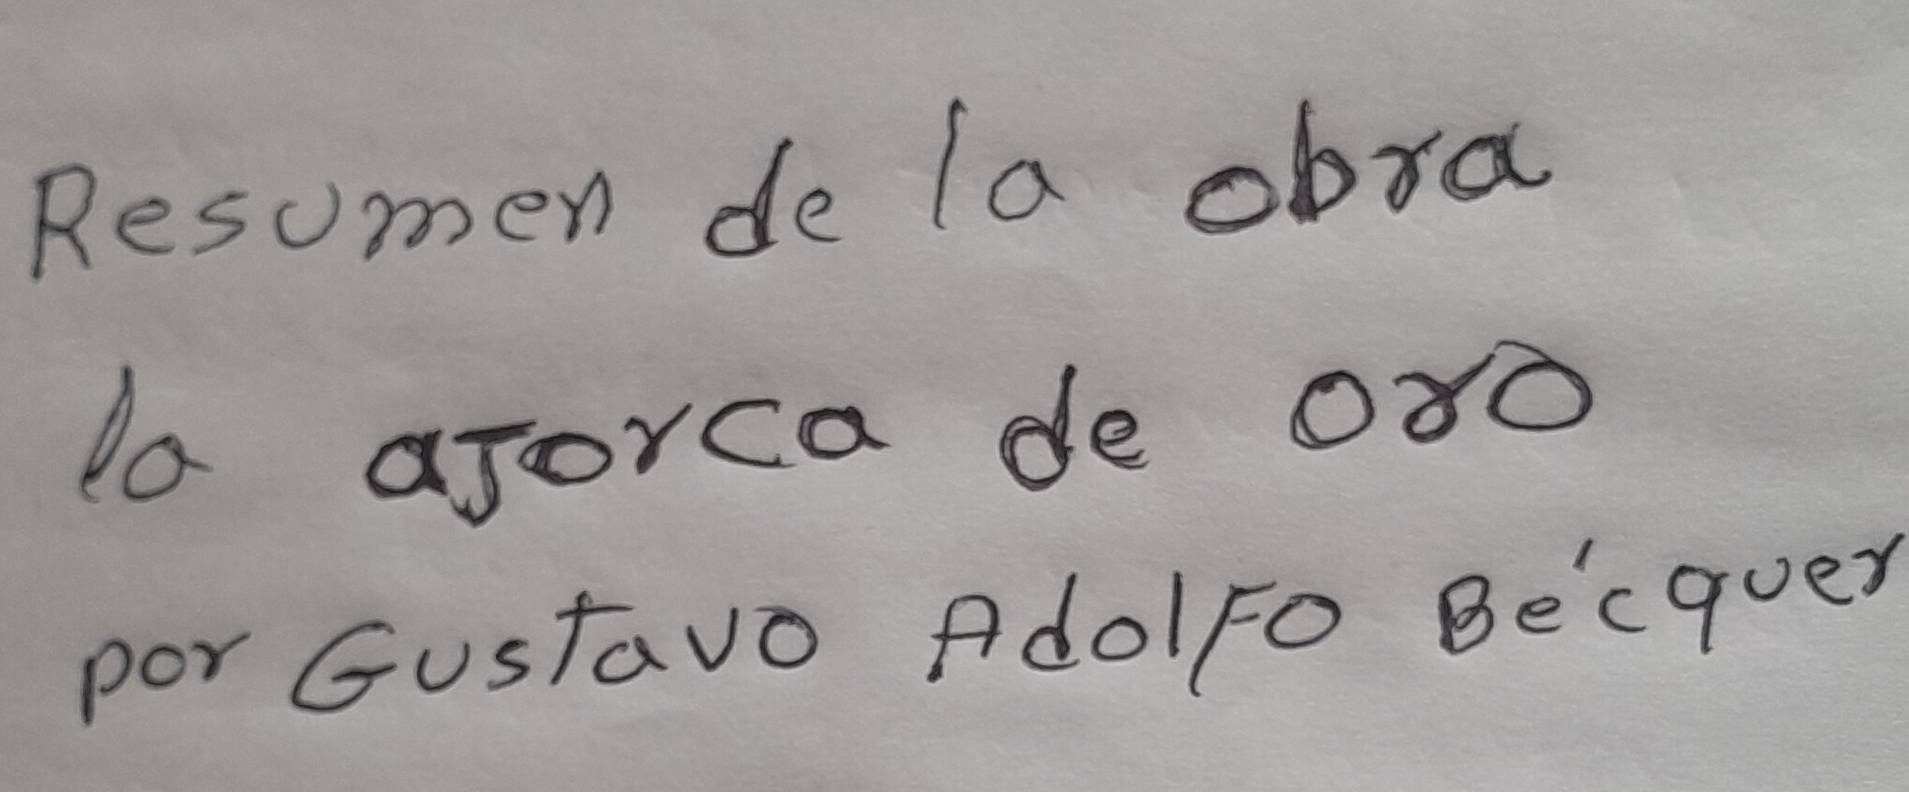 Resumen de la obra
la ajorca de oro
por Gustavo Adolfo Bécquer